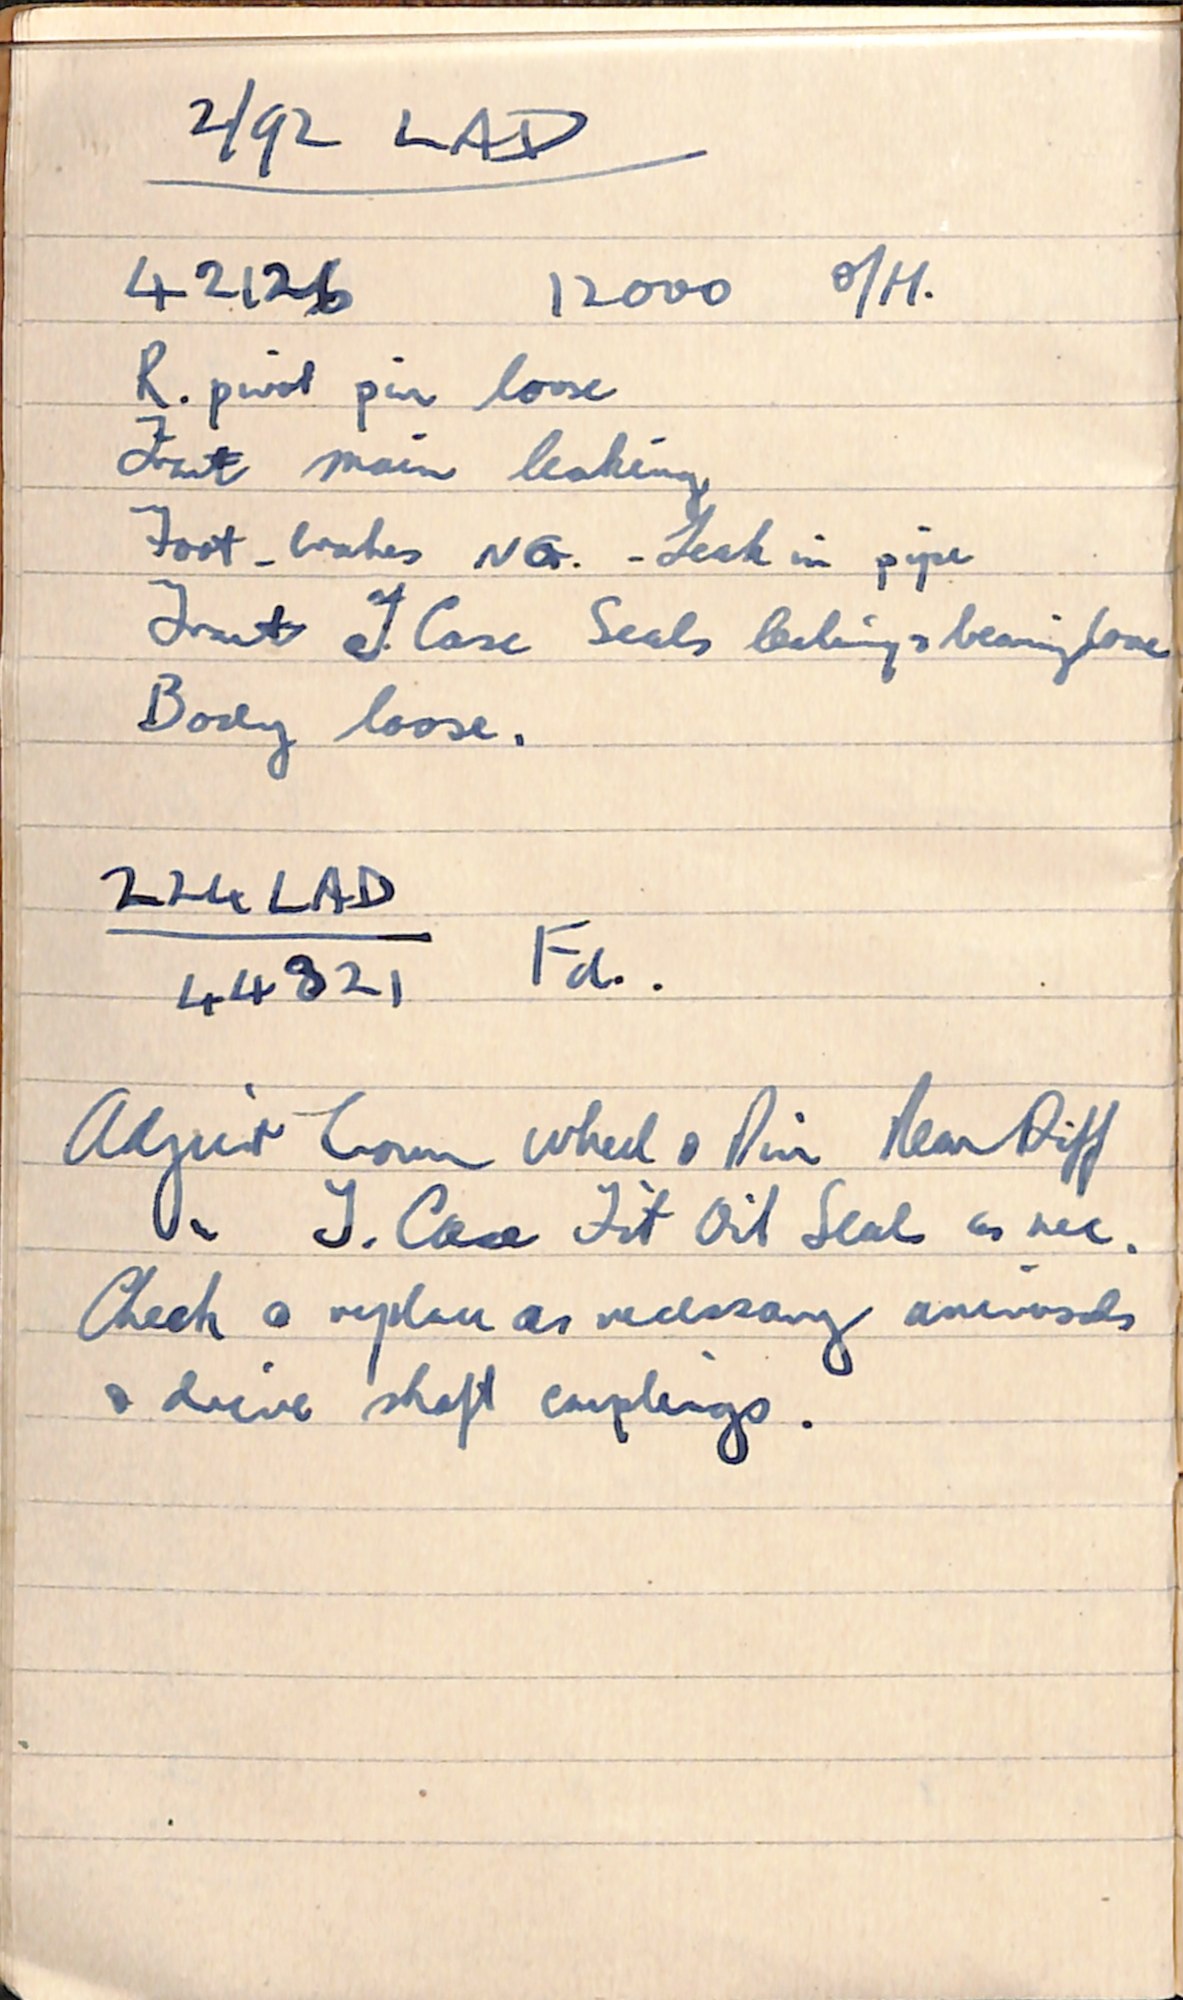 2/92 LAD
42126 12000 O/H.
R. pivot pin loose
Front main leaking
Foot-brakes NG. - Leak in pipe
Front T. Case Seals leaking & bearing loose
Body loose.
224 LAD
44821 Fd..
Adjust Crown wheel & Pin Rear Diff
" T. Case Fit Oil Seals as nec.
Check & replace as necessary universals
& drive shaft couplings.